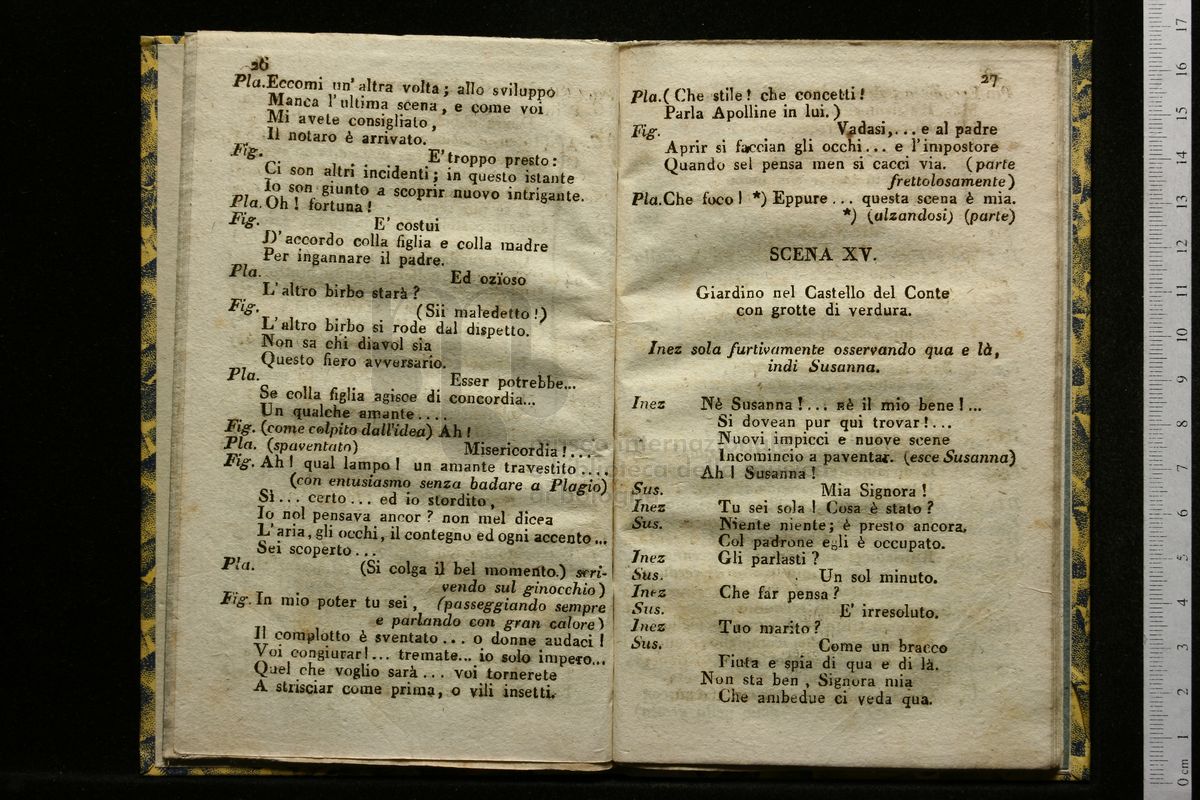 26
Pla. Eccomi un' altra volta; allo sviluppo
Manca l'ultima scena, e come voi
Mi avete consigliato,
Il notaro è arrivato.
Fig. E' troppo presto:
Ci son altri incidenti; in questo istante
Io son giunto a scoprir nuovo intrigante.
Pla. Oh! fortuna!
Fig. E' costui
D'accordo colla figlia e colla madre
Per ingannare il padre.
Pla. Ed ozïoso
L'altro birbo starà?
Fig. (Sii maledetto!)
L'altro birbo si rode dal dispetto.
Non sa chi diavol sia
Questo fiero avversario.
Pla. Esser potrebbe...
Se colla figlia agisce di concordia...
Un qualche amante....
Fig. (come colpito dall'idea) Ah!
Pla. (spaventato) Misericordia!...
Fig. Ah! qual lampo! un amante travestito....
(con entusiasmo senza badare a Plagio)
Sì... certo... ed io stordito,
Io nol pensava ancor? non mel dicea
L'aria, gli occhi, il contegno ed ogni accento...
Sei scoperto...
Pla. (Si colga il bel momento.) scri-
vendo sul ginocchio)
Fig. In mio poter tu sei, (passeggiando sempre
e parlando con gran calore)
Il complotto è sventato... o donne audaci!
Voi congiurar!... tremate... io solo impero...
Quel che voglio sarà... voi tornerete
A strisciar come prima, o vili insetti.
27
Pla. (Che stile! che concetti!
Parla Apolline in lui.)
Fig. Vadasi,... e al padre
Aprir si faccian gli occhi... e l'impostore
Quando sel pensa men si cacci via. (parte
frettolosamente)
Pla. Che foco! *) Eppure... questa scena è mia.
*) (alzandosi) (parte)
SCENA XV.
Giardino nel Castello del Conte
con grotte di verdura.
Inez sola furtivamente osservando qua e là,
indi Susanna.
Inez Nè Susanna!... nè il mio bene!...
Si dovean pur qui trovar!...
Nuovi impicci e nuove scene
Incomincio a paventar. (esce Susanna)
Ah! Susanna!
Sus. Mia Signora!
Inez Tu sei sola! Cosa è stato?
Sus. Niente niente; è presto ancora.
Col padrone egli è occupato.
Inez Gli parlasti?
Sus. Un sol minuto.
Inez Che far pensa?
Sus. E' irresoluto.
Inez Tuo marito?
Sus. Come un bracco
Fiuta e spia di qua e di là.
Non sta ben, Signora mia
Che ambedue ci veda qua.
0 cm 1 2 3 4 5 6 7 8 9 10 11 12 13 14 15 16 17